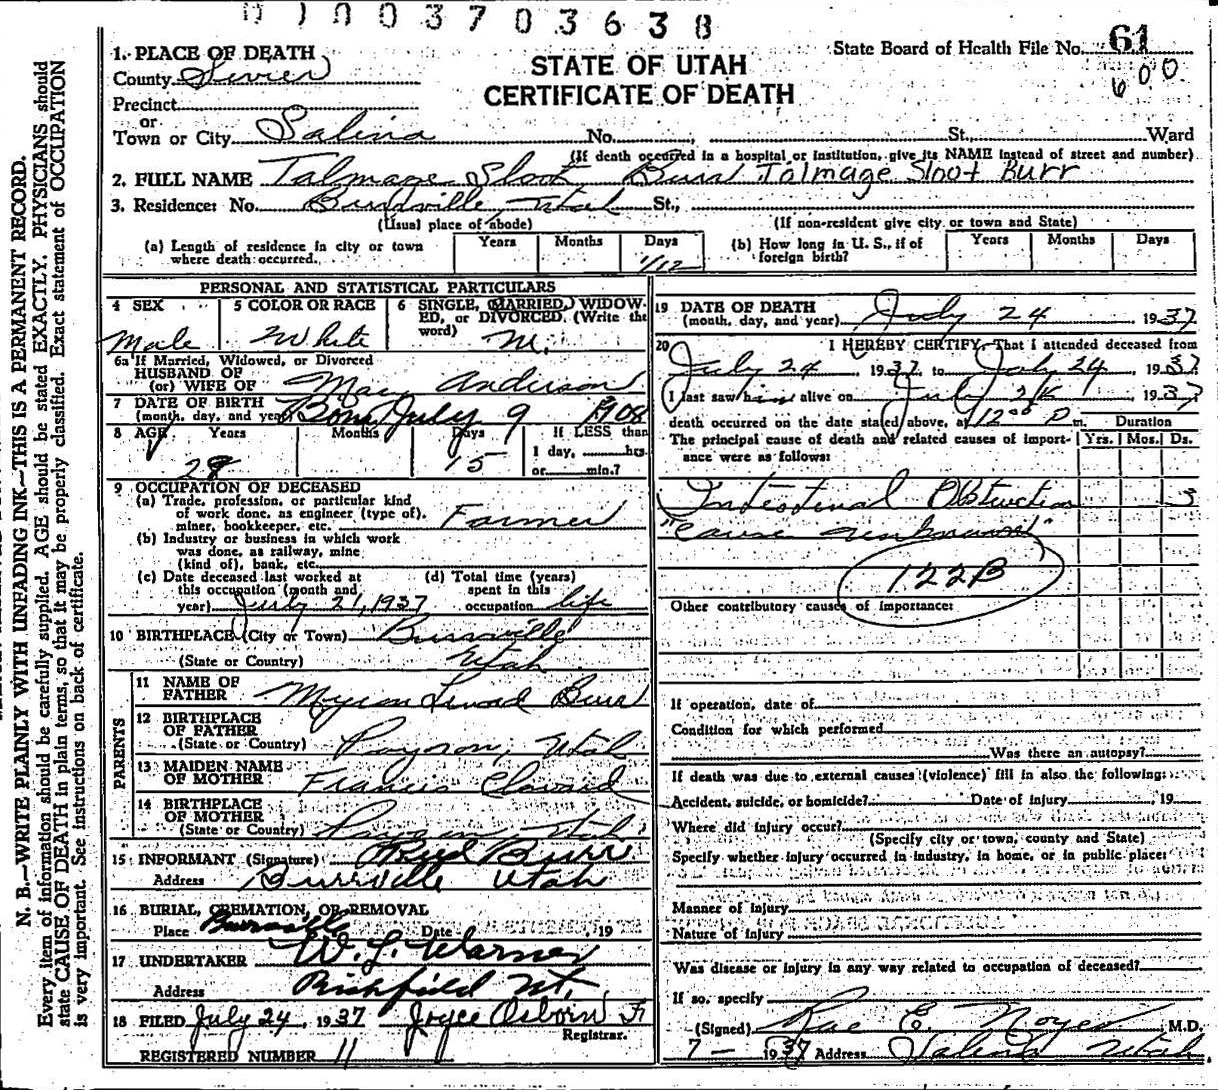 01003703638
State Board of Health File No. 61
600
STATE OF UTAH
CERTIFICATE OF DEATH
1. PLACE OF DEATH
County Sevier
Precinct
or
Town or City Salina No. St., Ward
(If death occurred in a hospital or institution, give its NAME instead of street and number)
2. FULL NAME Talmage Sloot Burr Talmage Sloot Burr
3. Residence: No. Burrville, Utah St.,
(Usual place of abode) (If non-resident give city or town and State)
(a) Length of residence in city or town where death occurred. Years Months Days 1/12
(b) How long in U. S., if of foreign birth? Years Months Days
PERSONAL AND STATISTICAL PARTICULARS
4 SEX Male
5 COLOR OR RACE White
6 SINGLE, MARRIED, WIDOWED, or DIVORCED. (Write the word) M.
6a If Married, Widowed, or Divorced
HUSBAND OF
(or) WIFE OF May Anderson
7 DATE OF BIRTH
(month, day, and year) Born July 9 1908
8 AGE Years Months Days If LESS than
1 day, hrs.
or min.?
28 15
9 OCCUPATION OF DECEASED
(a) Trade, profession, or particular kind
of work done, as engineer (type of),
miner, bookkeeper, etc. Farmer
(b) Industry or business in which work
was done, as railway, mine
(kind of), bank, etc.
(c) Date deceased last worked at
this occupation (month and
year) July 21, 1937
(d) Total time (years)
spent in this
occupation life
10 BIRTHPLACE (City or Town) Burrville
(State or Country) Utah
PARENTS
11 NAME OF
FATHER Myron Burr
12 BIRTHPLACE
OF FATHER
(State or Country) Payson, Utah
13 MAIDEN NAME
OF MOTHER Francis Cloward
14 BIRTHPLACE
OF MOTHER
(State or Country) Payson, Utah
15 INFORMANT (Signature) Reed Burr
Address Burrville Utah
16 BURIAL, CREMATION, OR REMOVAL
Place Burrville Date , 19
17 UNDERTAKER W. L. Warner
Address Richfield Ut.
18 FILED July 24, 1937 Joyce Osborn
Registrar.
REGISTERED NUMBER 11
19 DATE OF DEATH
(month, day, and year) July 24 1937
20 I HEREBY CERTIFY, That I attended deceased from
July 24 1937, to July 24, 1937
I last saw him alive on July 24 1937
death occurred on the date stated above, at 12:00 P m. Duration
The principal cause of death and related causes of importance were as follows: Yrs. Mos. Ds.
Intestinal Obstruction 3
"cause unknown"
122B
Other contributory causes of importance:
If operation, date of
Condition for which performed
Was there an autopsy?
If death was due to external causes (violence) fill in also the following:
Accident, suicide, or homicide? Date of injury , 19
Where did injury occur?
(Specify city or town, county and State)
Specify whether injury occurred in industry, in home, or in public place:
Manner of injury
Nature of injury
Was disease or injury in any way related to occupation of deceased?
If so, specify
(Signed) Rae E. Noyes, M.D.
7 - 1937 Address Salina Utah
N. B.—WRITE PLAINLY WITH UNFADING INK—THIS IS A PERMANENT RECORD.
Every item of information should be carefully supplied. AGE should be stated EXACTLY. PHYSICIANS should
state CAUSE OF DEATH in plain terms, so that it may be properly classified. Exact statement of OCCUPATION
is very important. See instructions on back of certificate.